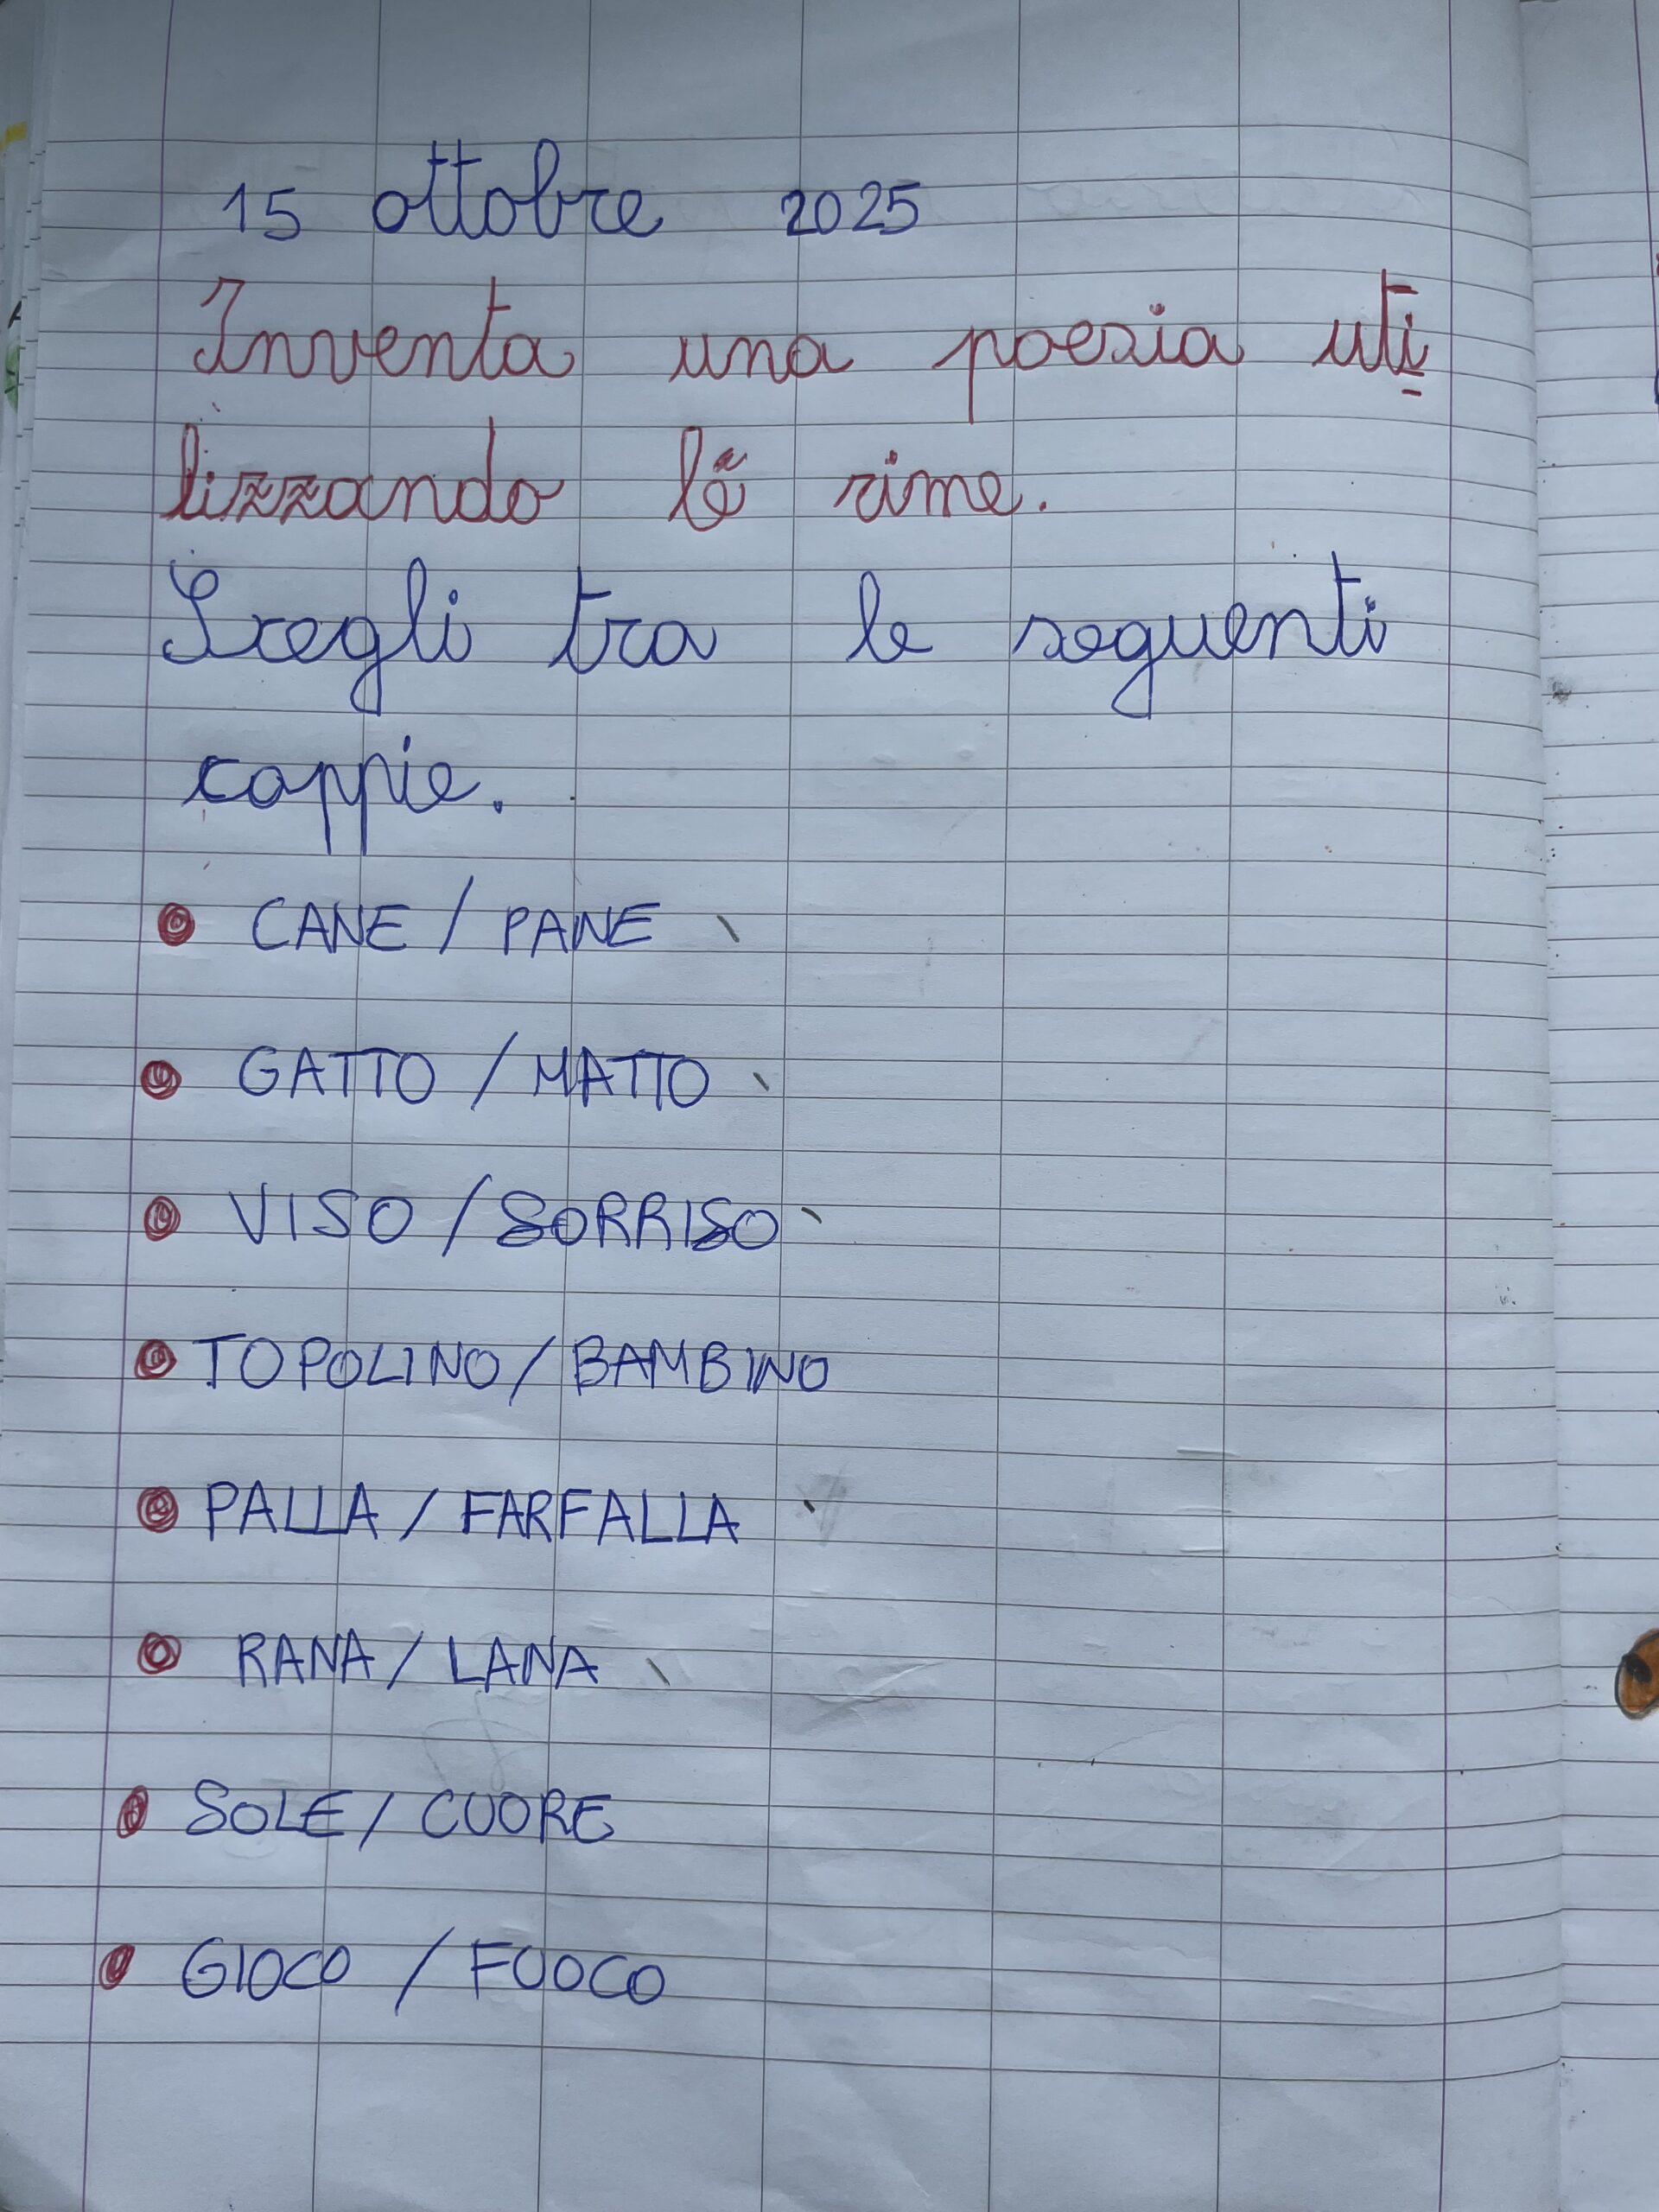 15 ottobre 2025
Inventa una poesia uti
lizzando le rime.
Scegli tra le seguenti
coppie.
CANE / PANE
GATTO / MATTO
VISO / SORRISO
TOPOLINO / BAMBINO
PALLA / FARFALLA
RANA / LANA
SOLE / CUORE
GIOCO / FUOCO